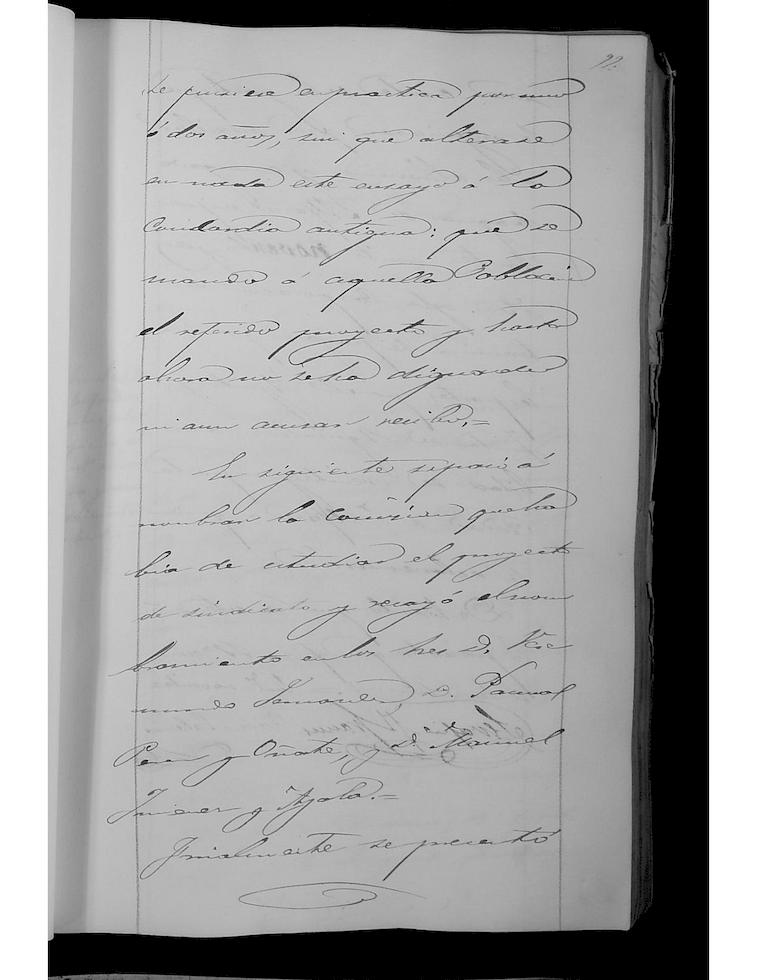 se pusiera en practica por uno
ó dos años, sin que alterase
en nada este ensayo á la
Concordia antigua: que se
mandó á aquella Poblacion
el referido proyecto y hasta
ahora no se ha dignado
ni aun acusar recibo.=
En siguiente se pasó á
nombrar la Comision que ha
bia de estudiar el proyecto
de sindicato y recayó el nom
bramiento en los Sres D.
D. Pascual
Perez y Oñate, y D. Manuel
Jimenez y Ayala.=
Finalmente se presentó